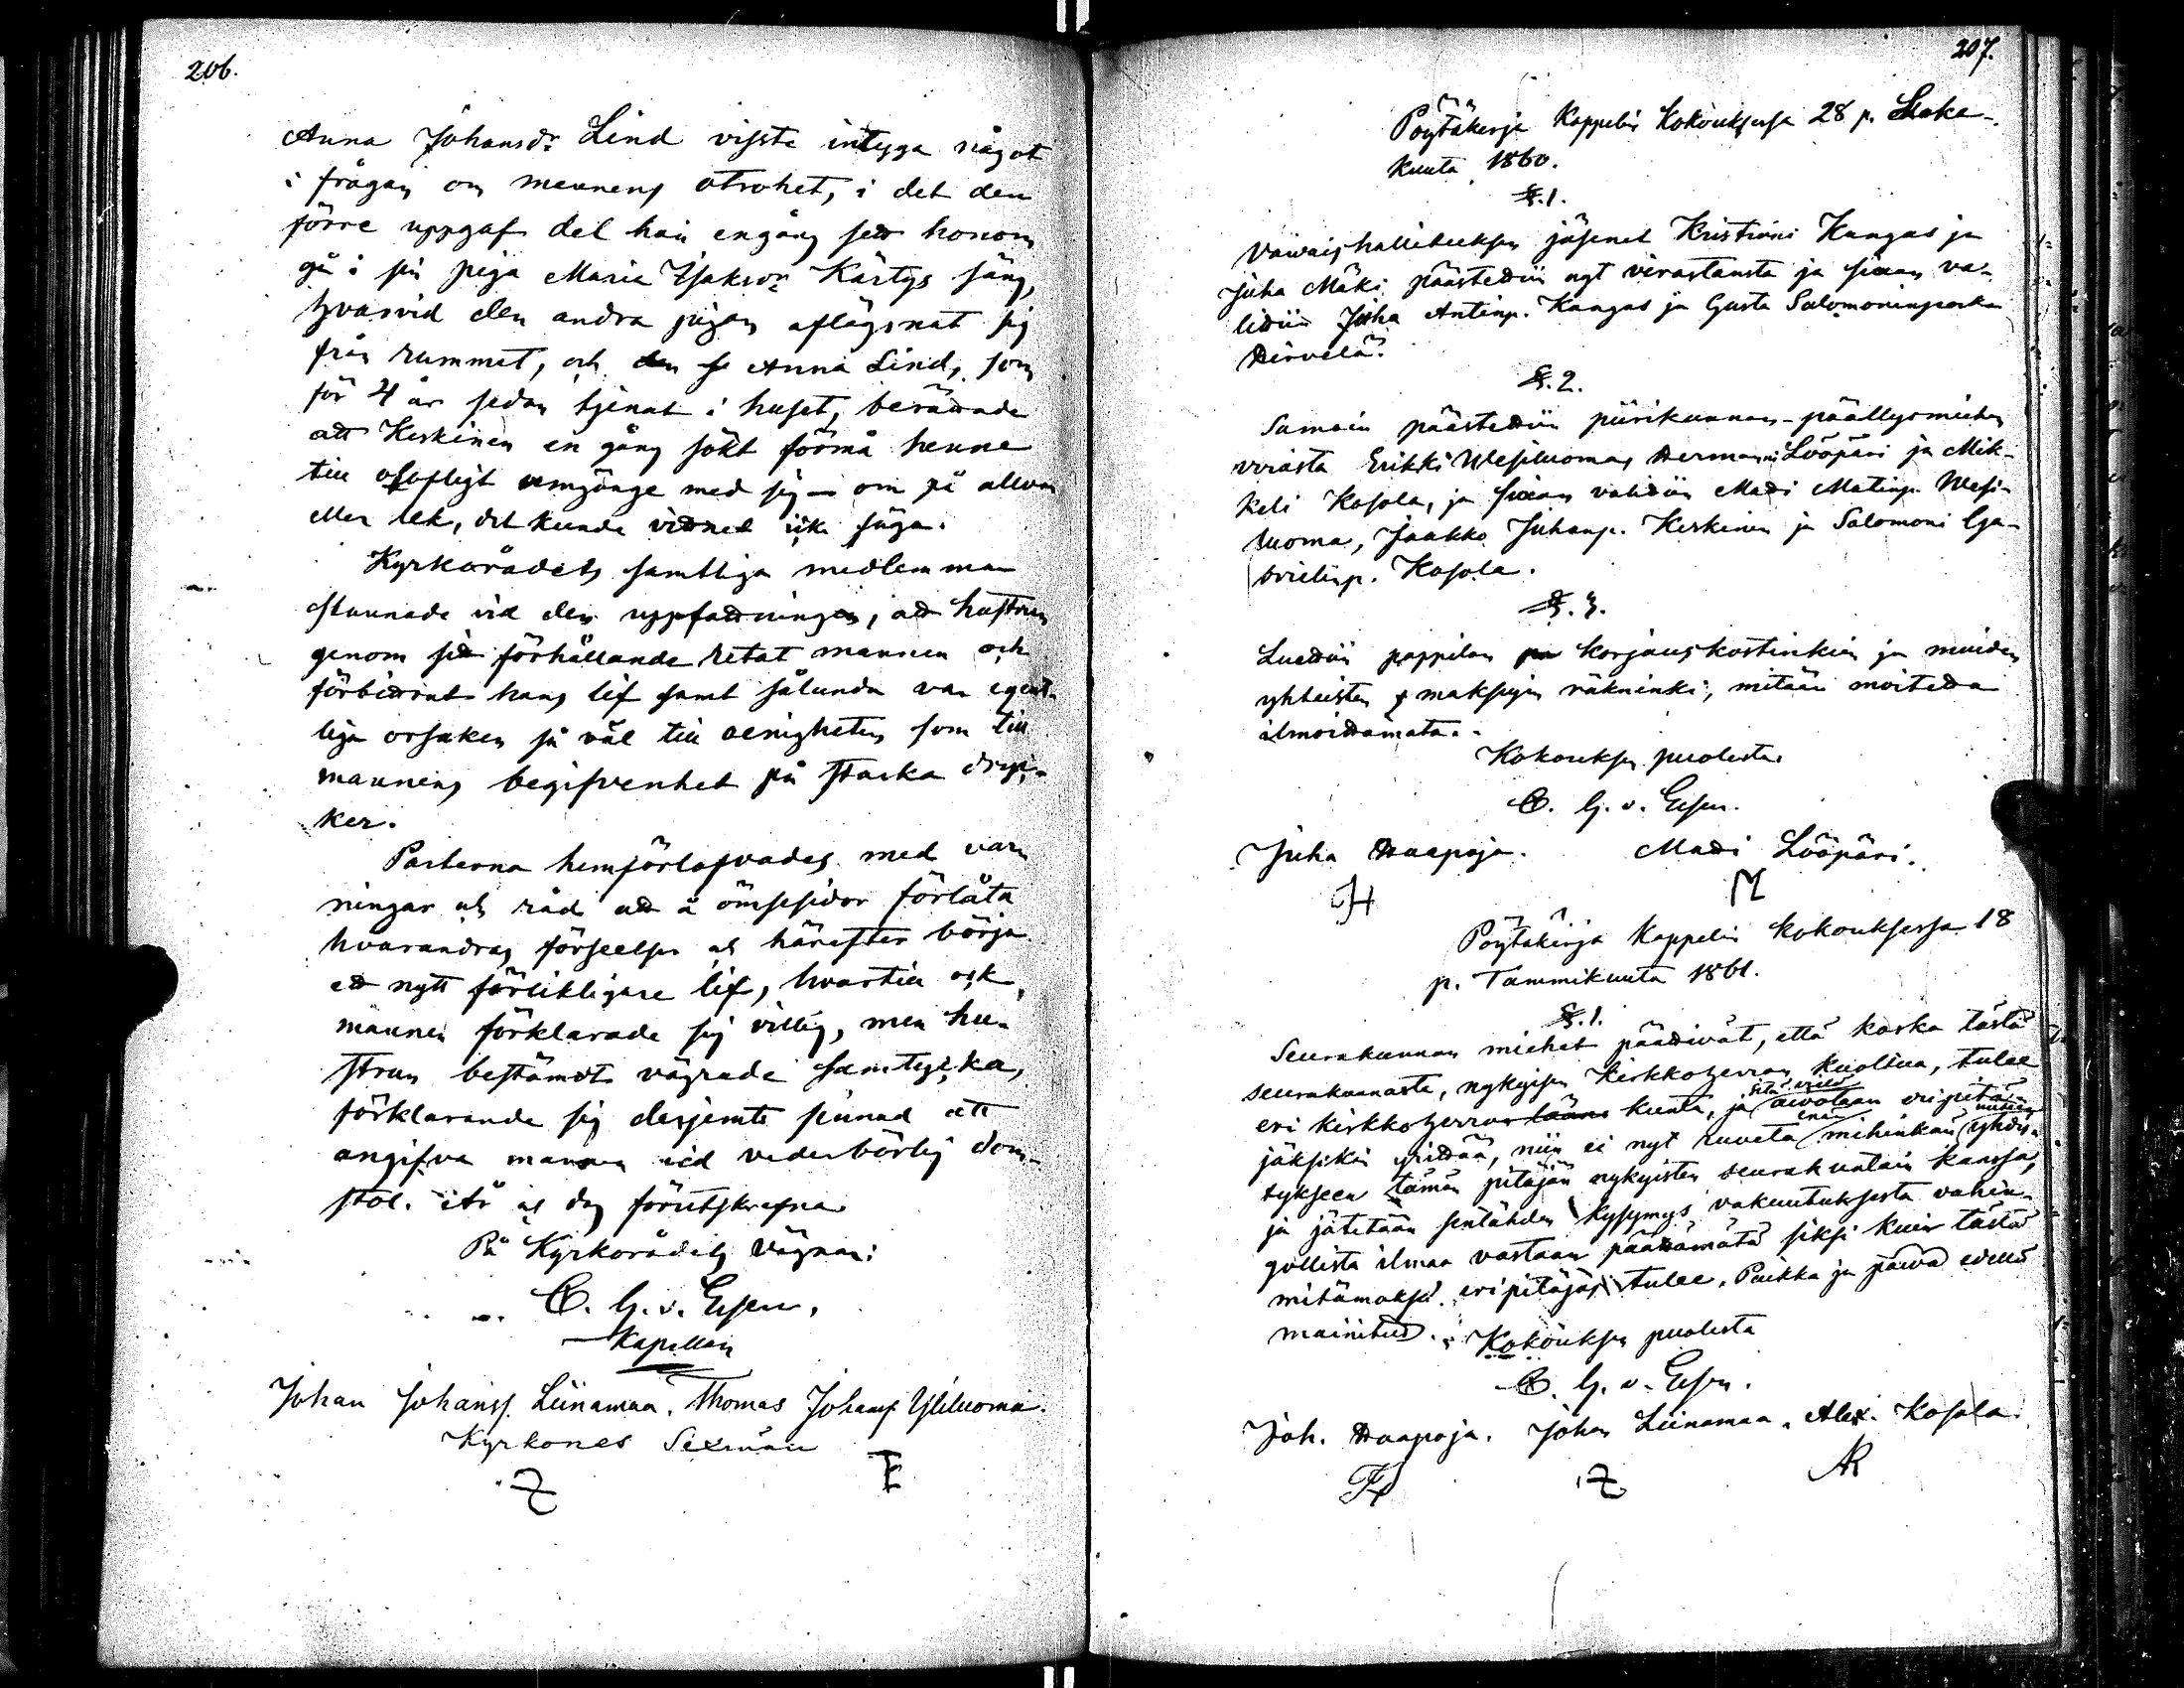 206.
Anna Johansdr Lind visste intyga något
i frågan om mannens otrohet, i det den
förre uppgaf det han engång sett honom
gå i sin piga Maria Isaksdr Kärtys säng,
hvarvid den andra pigan aflägsnat sig
från rummet, och den s Anna Lind, som
för 4 år sedan tjenat i huset, berättade
att Keskinen en gång sökt förmå henne
till olofligt umgänge med sig – om på allvar
eller lek, det kunde vittnet icke säga.
Kyrkorådets samtliga medlemmar
stannade vid den uppfattningen, att hustrun
genom sitt förhållande retat mannen och
förbittrat hans lif samt sålunda var egent-
liga orsaken så väl till oenigheten som till
mannens begifvenhet på starka dryc-
ker.
Parterna hemförlofvades med var-
ningar och råd att å ömsesidor förlåta
hvarandras förseelser och härefter börja
ett nytt förlikligare lif, hvartill ock
mannen förklarade sig villig, men hu-
strun bestämdt vägrade samtycka,
förklarande sig desjemte sinnad att
angifva mannen vid vederbörlig dom-
stol. År och dag förutskrefna
På Kyrkorådets vägnar:
C. G. v. Essen,
Kapellan
Johan Johanss. Liinamaa. Thomas Johanss Yliluoma.
Kyrkones Sexmän
Z T E
207.
Pöytäkirja Kappelin Kokouksessa 28 p. Loka-
kuuta 1860.
§. 1.
Vaivaishallituksen jäsenet Kristiani Kangas ja
Juha Mäki päästettiin nyt virastansta ja siaan va-
littiin Juha Antinp. Kangas ja Gusta Salomoninpoika
Hirvelä.
§. 2.
Samoin päästettiin piirikunnan-päällysmiehen
virasta Erikki Wesiluoma, Hermanni Lööpäri ja Mik-
keli Kosola, ja siaan valittiin Matti Matinp. Wesi-
luoma, Jaakko Juhanp. Keskinen ja Salomoni Ga-
brielinp. Kosola.
§. 3.
Luettiin pappilan ja korjauskostinkin ja muiden
yhteisten maksujen räkninki, mitään moitetta
ilmoittamata.
Kokouksen puolesta
C. G. v. Essen.
Juha Haapoja. Matti Lööpäri.
H M
Pöytäkirja Kappelin kokouksessa 18
p. Tammikuuta 1861.
§. 1.
Seurakunnan miehet päättivät, että koska tästä
seurakunnasta, nykyisen Kirkkoherran kuoltua, tulee
eri kirkkoherran lääni kunta, ja sitä vielä aivotaan eri pitä-
jäksikin yrittää, niin ei nyt ruveta enää mihinkään uuteen yhdis-
tykseen tämän pitäjän nykyisten seurakuntain kanssa,
ja jätetään sentähden kysymys vakuutuksesta vahin-
gollista ilmaa vastaan päättämätä siksi kuin tästä
mitämaksi eripitäjäs tulee. Paikka ja päivä edellä
mainitut. Kokouksen puolesta
C. G. v. Essen.
Joh. Haapoja. Johan Liinamaa. Alex. Kosola.
Z AK